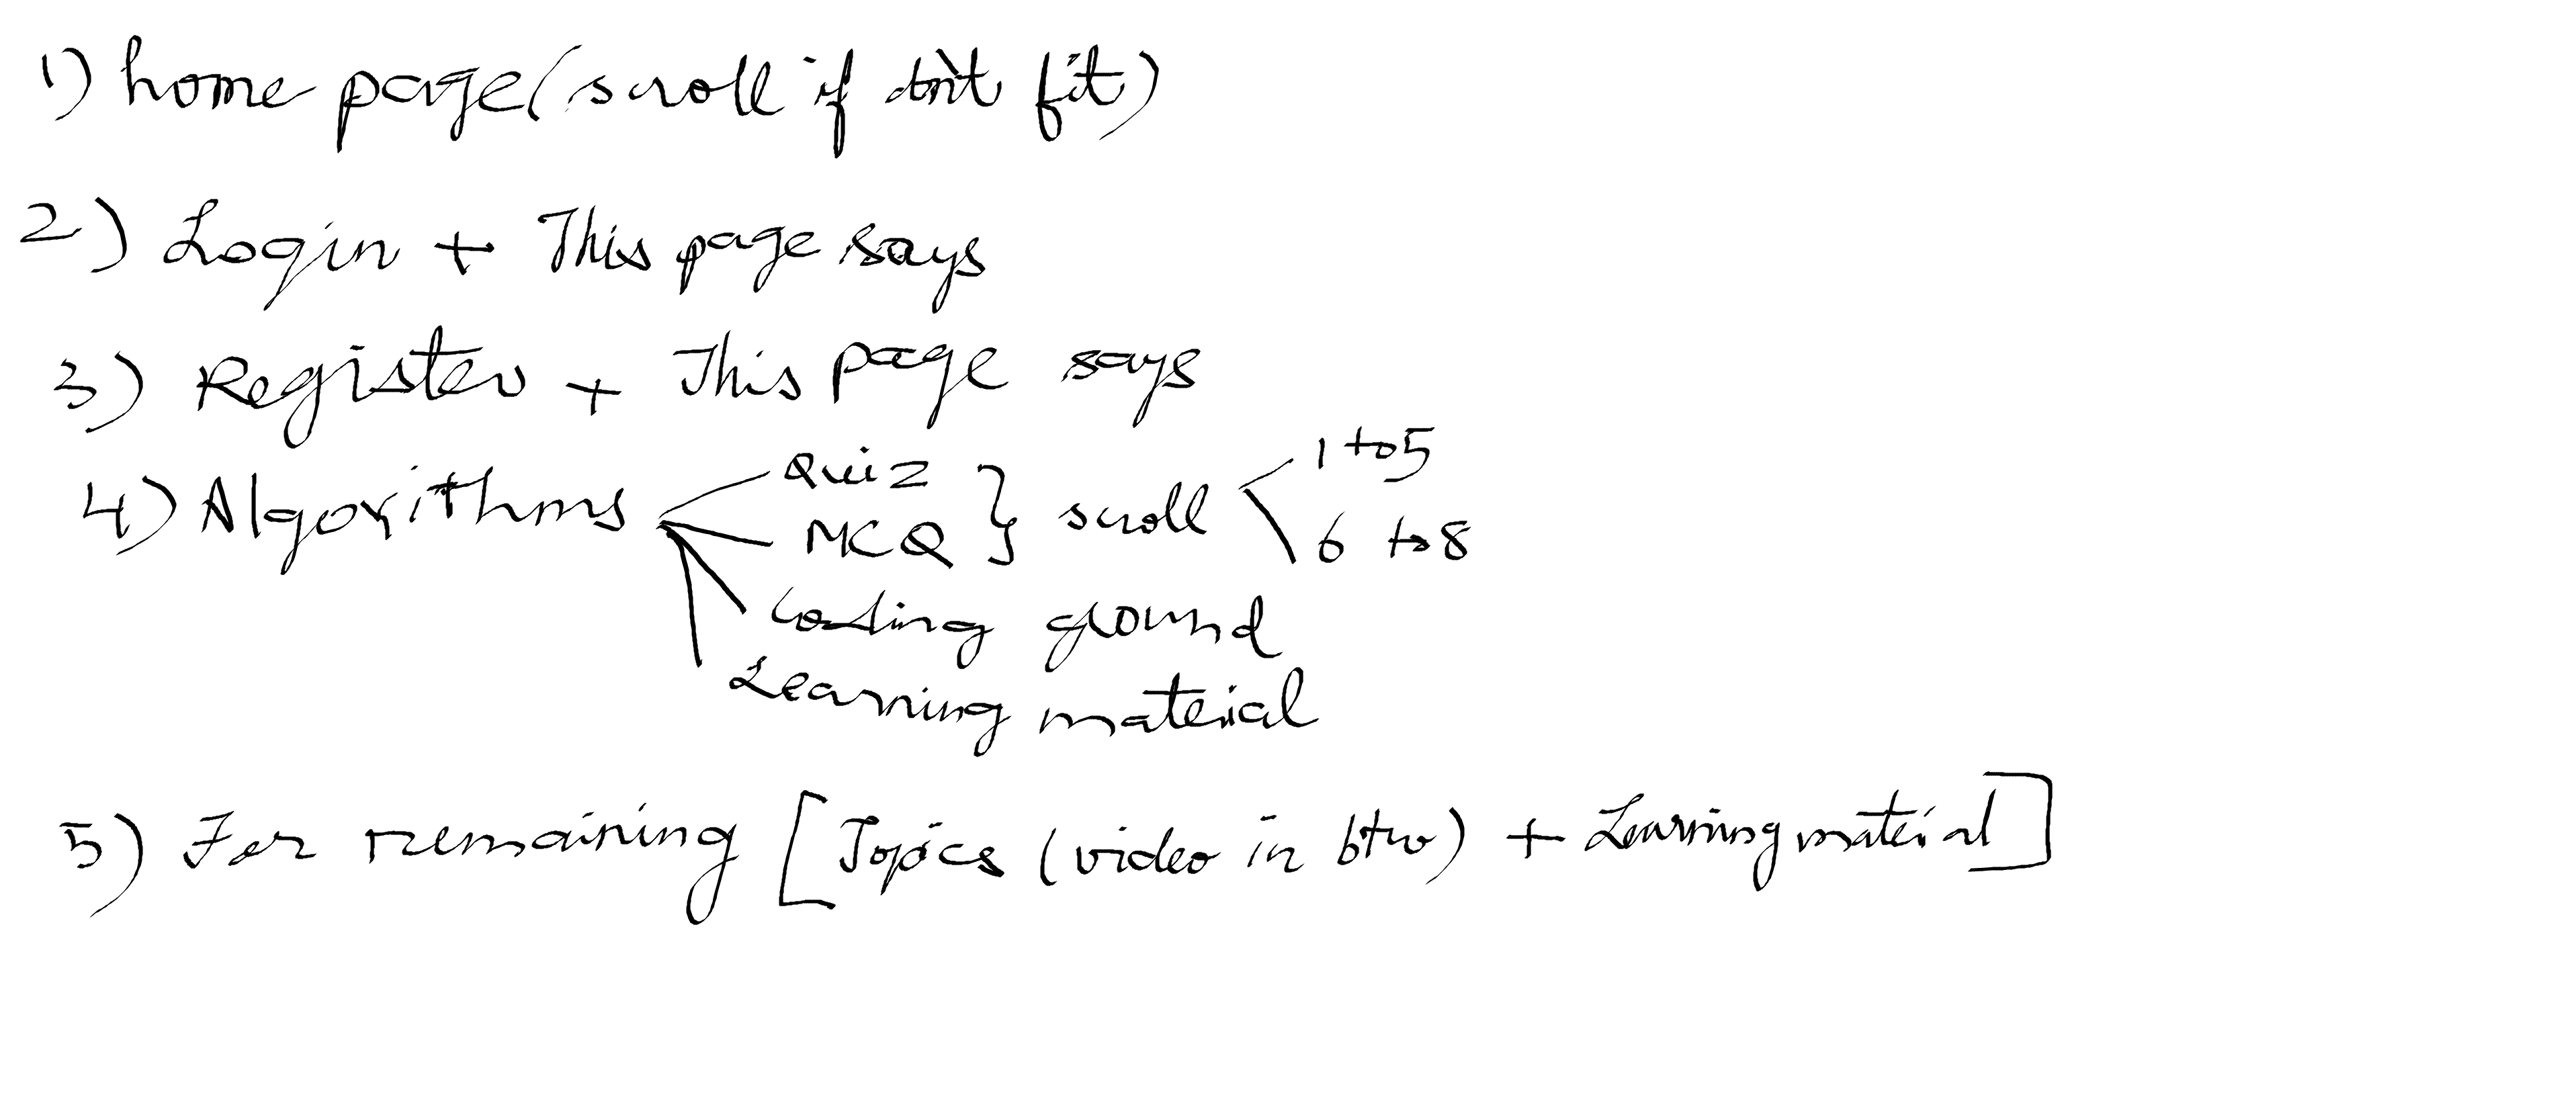 1) home page (scroll if don't fit)
2) Login + This page says
3) Register + This page says
4) Algorithms
Quiz
MCQ } scroll
1 to 5
6 to 8
Coding ground
Learning material
5) For remaining [Topics (video in btw) + Learning material]